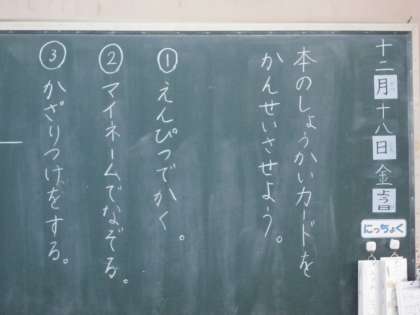 十二月十八日金曜日
にっちょく
本のしょうかいカードを
かんせいさせよう。
①えんぴつでかく。
②マイネームでなぞる。
③かざりつけをする。